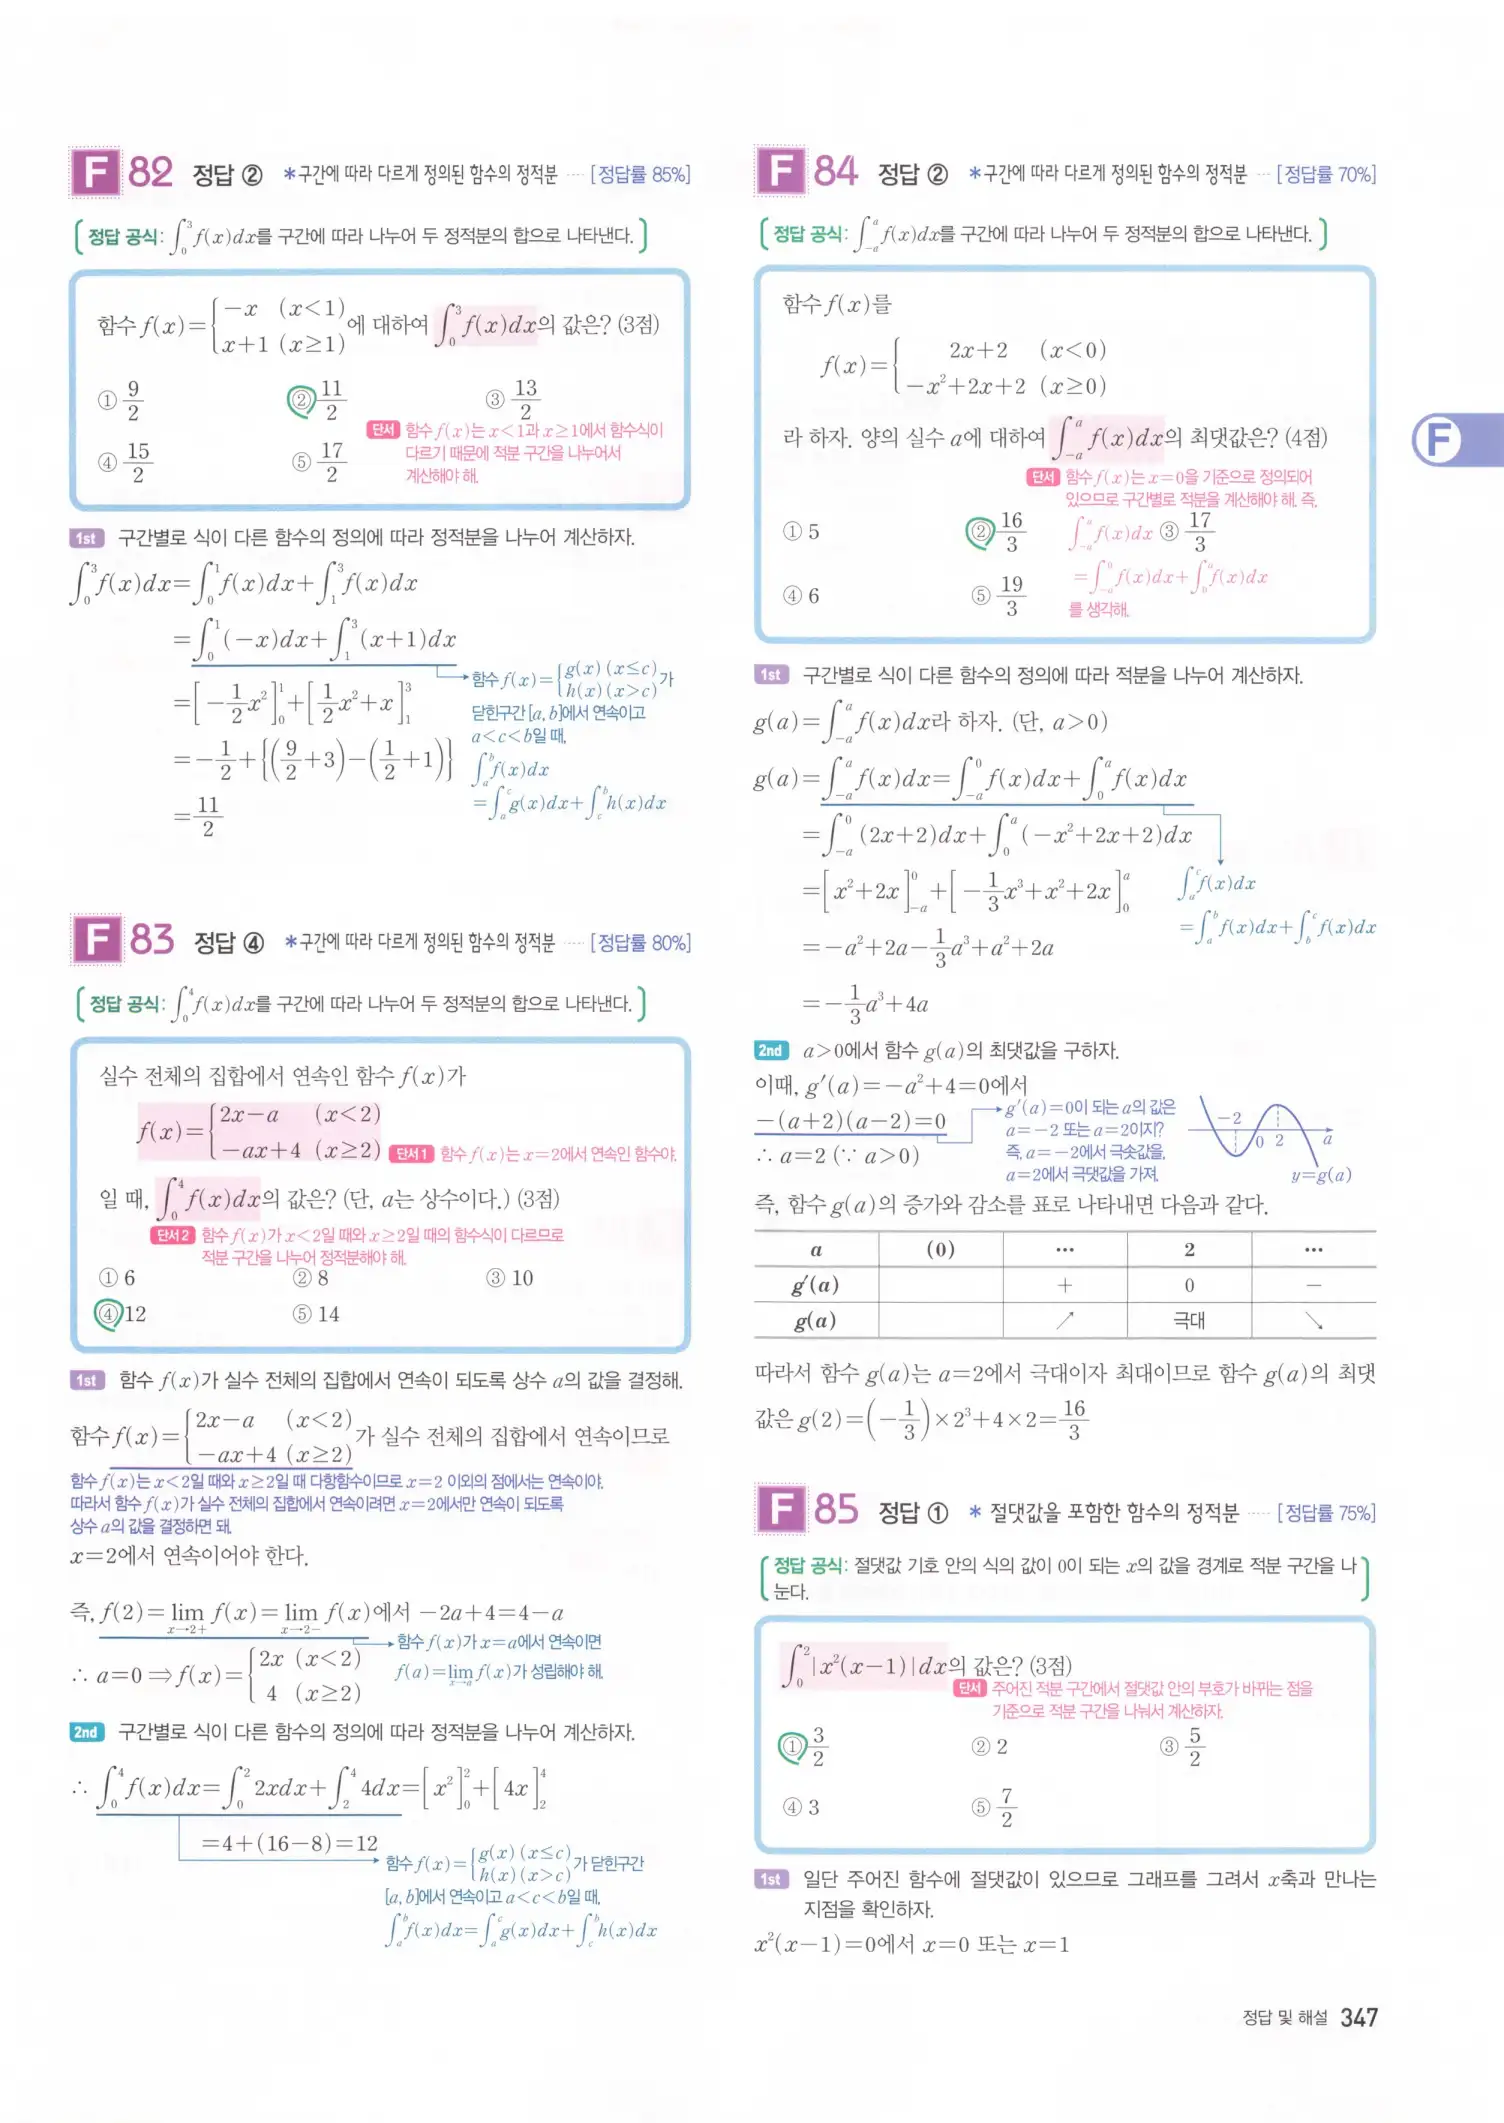 F 82 정답 ② *구간에 따라 다르게 정의된 함수의 정적분 ···· [정답률 85%]
정답 공식: ∫₀³ f(x)dx를 구간에 따라 나누어 두 정적분의 합으로 나타낸다.
함수 f(x)={ -x (x<1)
x+1 (x≥1) 에 대하여 ∫₀³ f(x)dx의 값은? (3점)
① 9/2 ② 11/2 ③ 13/2
단서 함수 f(x)는 x<1과 x≥1에서 함수식이
다르기 때문에 적분 구간을 나누어서
계산해야 해.
④ 15/2 ⑤ 17/2
1st 구간별로 식이 다른 함수의 정의에 따라 정적분을 나누어 계산하자.
∫₀³ f(x)dx=∫₀¹ f(x)dx+∫₁³ f(x)dx
=∫₀¹ (-x)dx+∫₁³ (x+1)dx
=[-1/2 x²]₀¹+[1/2 x²+x]₁³
=-1/2+{(9/2+3)-(1/2+1)}
=11/2
함수 f(x)={ g(x) (x≤c)
h(x) (x>c) 가
닫힌구간 [a, b]에서 연속이고
a<c<b일 때,
∫ₐᵇ f(x)dx
=∫ₐᶜ g(x)dx+∫꜀ᵇ h(x)dx
F 83 정답 ④ *구간에 따라 다르게 정의된 함수의 정적분 ···· [정답률 80%]
정답 공식: ∫₀⁴ f(x)dx를 구간에 따라 나누어 두 정적분의 합으로 나타낸다.
실수 전체의 집합에서 연속인 함수 f(x)가
f(x)={ 2x-a (x<2)
-ax+4 (x≥2) 단서1 함수 f(x)는 x=2에서 연속인 함수야.
일 때, ∫₀⁴ f(x)dx의 값은? (단, a는 상수이다.) (3점)
단서2 함수 f(x)가 x<2일 때와 x≥2일 때의 함수식이 다르므로
적분 구간을 나누어 정적분해야 해.
① 6 ② 8 ③ 10
④ 12 ⑤ 14
1st 함수 f(x)가 실수 전체의 집합에서 연속이 되도록 상수 a의 값을 결정해.
함수 f(x)={ 2x-a (x<2)
-ax+4 (x≥2) 가 실수 전체의 집합에서 연속이므로
함수 f(x)는 x<2일 때와 x≥2일 때 다항함수이므로 x=2 이외의 점에서는 연속이야.
따라서 함수 f(x)가 실수 전체의 집합에서 연속이려면 x=2에서만 연속이 되도록
상수 a의 값을 결정하면 돼.
x=2에서 연속이어야 한다.
즉, f(2)=lim x→2+ f(x)=lim x→2- f(x)에서 -2a+4=4-a
함수 f(x)가 x=a에서 연속이면
f(a)=lim x→a f(x)가 성립해야 해.
∴ a=0 ⇒ f(x)={ 2x (x<2)
4 (x≥2)
2nd 구간별로 식이 다른 함수의 정의에 따라 정적분을 나누어 계산하자.
∴ ∫₀⁴ f(x)dx=∫₀² 2xdx+∫₂⁴ 4dx=[x²]₀²+[4x]₂⁴
=4+(16-8)=12
함수 f(x)={ g(x) (x≤c)
h(x) (x>c) 가 닫힌구간
[a, b]에서 연속이고 a<c<b일 때,
∫ₐᵇ f(x)dx=∫ₐᶜ g(x)dx+∫꜀ᵇ h(x)dx
F 84 정답 ② *구간에 따라 다르게 정의된 함수의 정적분 ··· [정답률 70%]
정답 공식: ∫₋ₐᵃ f(x)dx를 구간에 따라 나누어 두 정적분의 합으로 나타낸다.
함수 f(x)를
f(x)={ 2x+2 (x<0)
-x²+2x+2 (x≥0)
라 하자. 양의 실수 a에 대하여 ∫₋ₐᵃ f(x)dx의 최댓값은? (4점)
단서 함수 f(x)는 x=0을 기준으로 정의되어
있으므로 구간별로 적분을 계산해야 해. 즉,
∫₋ₐᵃ f(x)dx
=∫₋ₐ⁰ f(x)dx+∫₀ᵃ f(x)dx
를 생각해.
① 5 ② 16/3 ③ 17/3
④ 6 ⑤ 19/3
1st 구간별로 식이 다른 함수의 정의에 따라 적분을 나누어 계산하자.
g(a)=∫₋ₐᵃ f(x)dx라 하자. (단, a>0)
g(a)=∫₋ₐᵃ f(x)dx=∫₋ₐ⁰ f(x)dx+∫₀ᵃ f(x)dx
=∫₋ₐ⁰ (2x+2)dx+∫₀ᵃ (-x²+2x+2)dx
=[x²+2x]₋ₐ⁰+[-1/3 x³+x²+2x]₀ᵃ
=-a²+2a-1/3 a³+a²+2a
=-1/3 a³+4a
∫ₐᶜ f(x)dx
=∫ₐᵇ f(x)dx+∫_b^c f(x)dx
2nd a>0에서 함수 g(a)의 최댓값을 구하자.
이때, g′(a)=-a²+4=0에서
-(a+2)(a-2)=0
∴ a=2 (∵ a>0)
g′(a)=0이 되는 a의 값은
a=-2 또는 a=2이지?
즉, a=-2에서 극솟값을,
a=2에서 극댓값을 가져.
-2 0 2 a
y=g(a)
즉, 함수 g(a)의 증가와 감소를 표로 나타내면 다음과 같다.
a (0) ··· 2 ···
g′(a) + 0 -
g(a) ↗ 극대 ↘
따라서 함수 g(a)는 a=2에서 극대이자 최대이므로 함수 g(a)의 최댓
값은 g(2)=(-1/3)×2³+4×2=16/3
F 85 정답 ① * 절댓값을 포함한 함수의 정적분 ···· [정답률 75%]
정답 공식: 절댓값 기호 안의 식의 값이 0이 되는 x의 값을 경계로 적분 구간을 나
눈다.
∫₀² |x²(x-1)|dx의 값은? (3점)
단서 주어진 적분 구간에서 절댓값 안의 부호가 바뀌는 점을
기준으로 적분 구간을 나눠서 계산하자.
① 3/2 ② 2 ③ 5/2
④ 3 ⑤ 7/2
1st 일단 주어진 함수에 절댓값이 있으므로 그래프를 그려서 x축과 만나는
지점을 확인하자.
x²(x-1)=0에서 x=0 또는 x=1
F
정답 및 해설 347